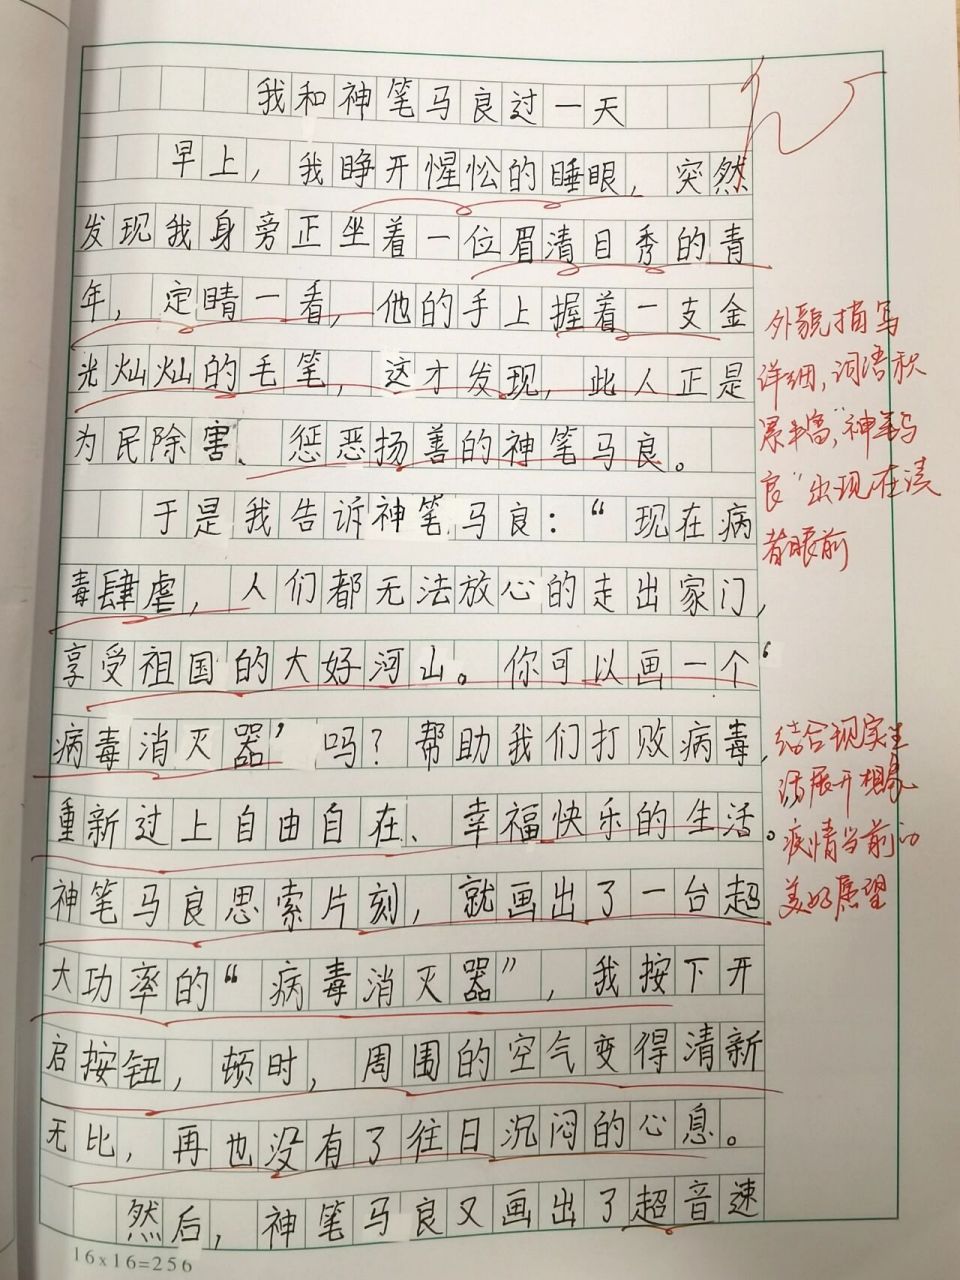 我和神笔马良过一天
早上，我睁开惺忪的睡眼，突然
发现我身旁正坐着一位眉清目秀的青
年，定睛一看，他的手上握着一支金
光灿灿的毛笔，这才发现，此人正是
为民除害、惩恶扬善的神笔马良。
于是我告诉神笔马良：“现在病
毒肆虐，人们都无法放心的走出家门，
享受祖国的大好河山。你可以画一个‘
病毒消灭器’吗？帮助我们打败病毒，
重新过上自由自在、幸福快乐的生活。
神笔马良思索片刻，就画出了一台超
大功率的“病毒消灭器”，我按下开
启按钮，顿时，周围的空气变得清新
无比，再也没有了往日沉闷的心息。
然后，神笔马良又画出了超音速
16x16=256
外貌描写
详细，词语积
累丰富，“神笔马
良”出现在读
者眼前
结合现实生
活展开想象
疫情当前的
美好愿望